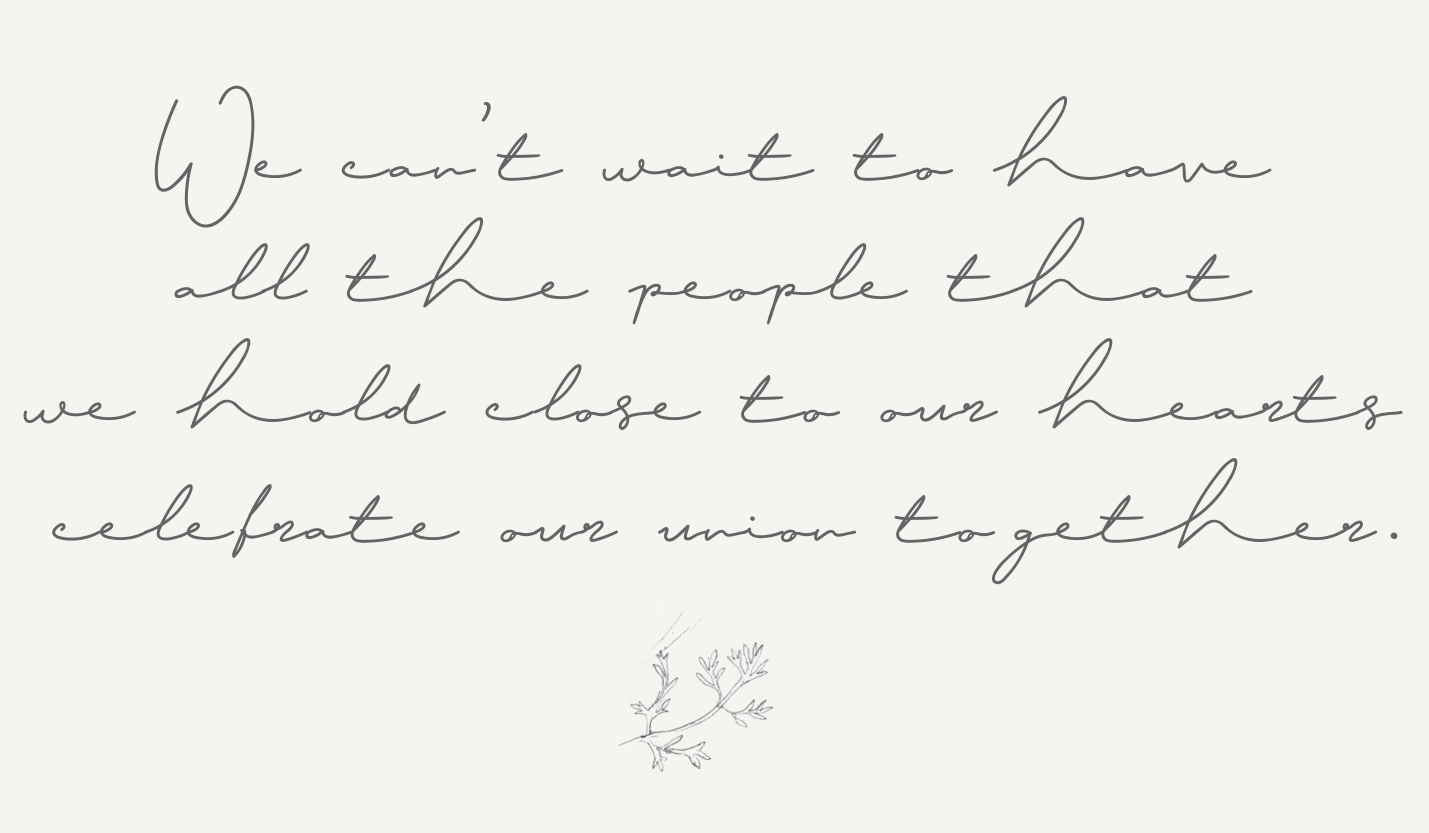 We can't wait to have
all the people that
we hold close to our hearts
celebrate our union together.